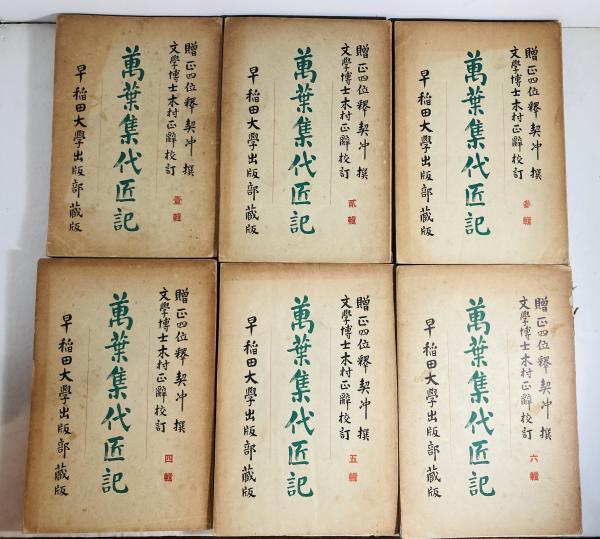 贈正四位釋契冲撰
文學博士木村正辭校訂
萬葉集代匠記
壹輯
早稲田大學出版部藏版
贈正四位釋契冲撰
文學博士木村正辭校訂
萬葉集代匠記
貳輯
早稲田大學出版部藏版
贈正四位釋契冲撰
文學博士木村正辭校訂
萬葉集代匠記
參輯
早稲田大學出版部藏版
贈正四位釋契冲撰
文學博士木村正辭校訂
萬葉集代匠記
四輯
早稲田大學出版部藏版
贈正四位釋契冲撰
文學博士木村正辭校訂
萬葉集代匠記
五輯
早稲田大學出版部藏版
贈正四位釋契冲撰
文學博士木村正辭校訂
萬葉集代匠記
六輯
早稲田大學出版部藏版